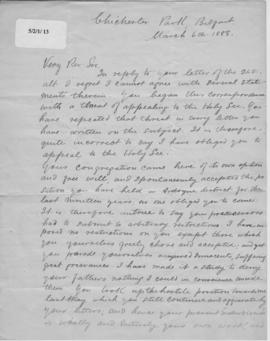 Chichester Park, Belfast
March 6th 1888.
5/2/1/13
Very Rev Sir
In reply to your letter of the 2nd
ult I regret I cannot agree with several state
ments therein. You began this correspondence
with a threat of appealing to the Holy See. You
have repeated that threat in every letter you
have written on the subject. It is therefore
quite incorrect to say I have obliged you to
appeal to the Holy See.
Your Congregation came here of its own option
and free will and spontaneously accepted the po
sition you have held in diocese district for the
last nineteen years, no one obliged you to come.
It is therefore untrue to say your predecessors
had to submit to arbitrary restrictions. I have im
posed no restrictions on you except those which
you yourselves freely chose and accepted, and yet
you parade yourselves as injured innocents, suffering
great grievances. I have made it a study to deny
your fathers nothing I could in convenience
them. You took up the hostile position
which you still continue and aggravate by
your letters, and hence your present
is wholly and entirely your own work and